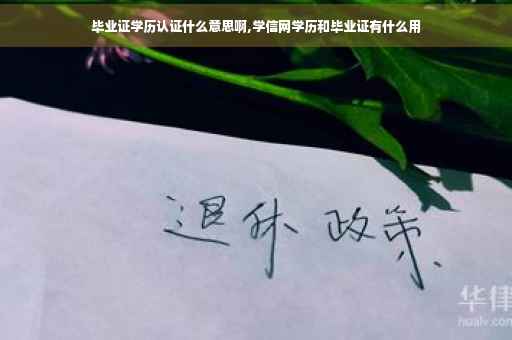 毕业证学历认证什么意思啊,学信网学历和毕业证有什么用
退休 政策
华律
hualv.com